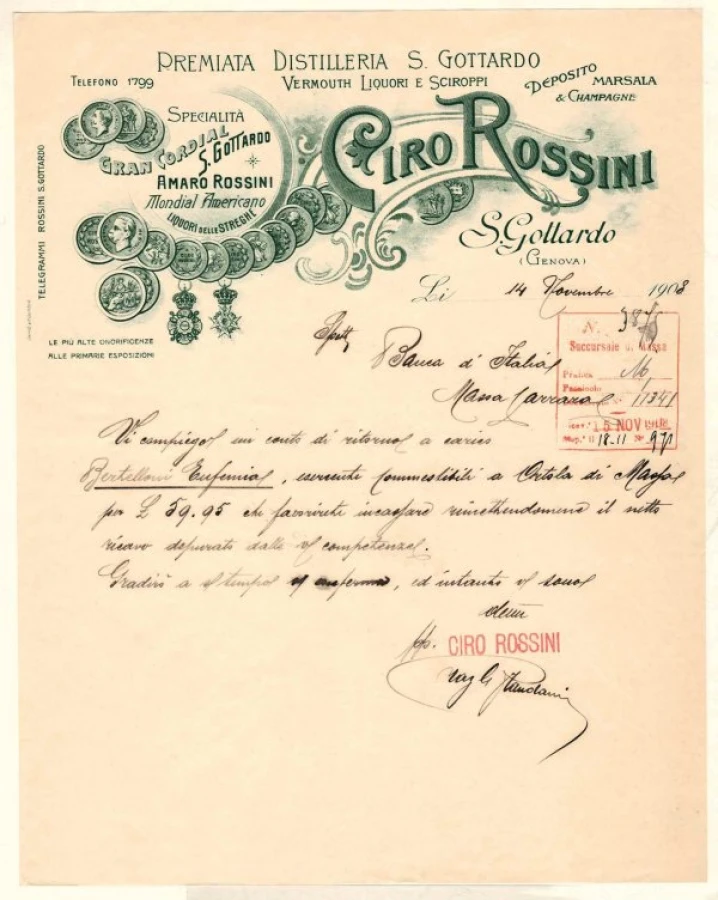 PREMIATA DISTILLERIA S. GOTTARDO
TELEFONO 1799
VERMOUTH LIQUORI E SCIROPPI
DEPOSITO MARSALA
& CHAMPAGNE
SPECIALITÀ
GRAN CORDIAL
S. GOTTARDO
AMARO ROSSINI
Mondial Americano
LIQUORI DELLE STREGHE
CIRO ROSSINI
S. Gottardo
(GENOVA)
TELEGRAMMI ROSSINI S. GOTTARDO
LE PIÙ ALTE ONORIFICENZE
ALLE PRIMARIE ESPOSIZIONI
Li 14 Novembre 1908
Spett
Banca d'Italia
Massa Carrara
N.
Succursale di Massa
Pratica M
Fascicolo
N° 11341
15 NOV 1908
Risp. il 18.11 N°
Vi compiego un conto di ritorno a carico
Bertelloni Eufemia, esercente commestibili a Ortola di Massa
per £ 59.95 che favorirete incassare rimettendomene il netto
ricavo depurato dalle competenze.
Gradirò a tempo, ed intanto
pp. CIRO ROSSINI